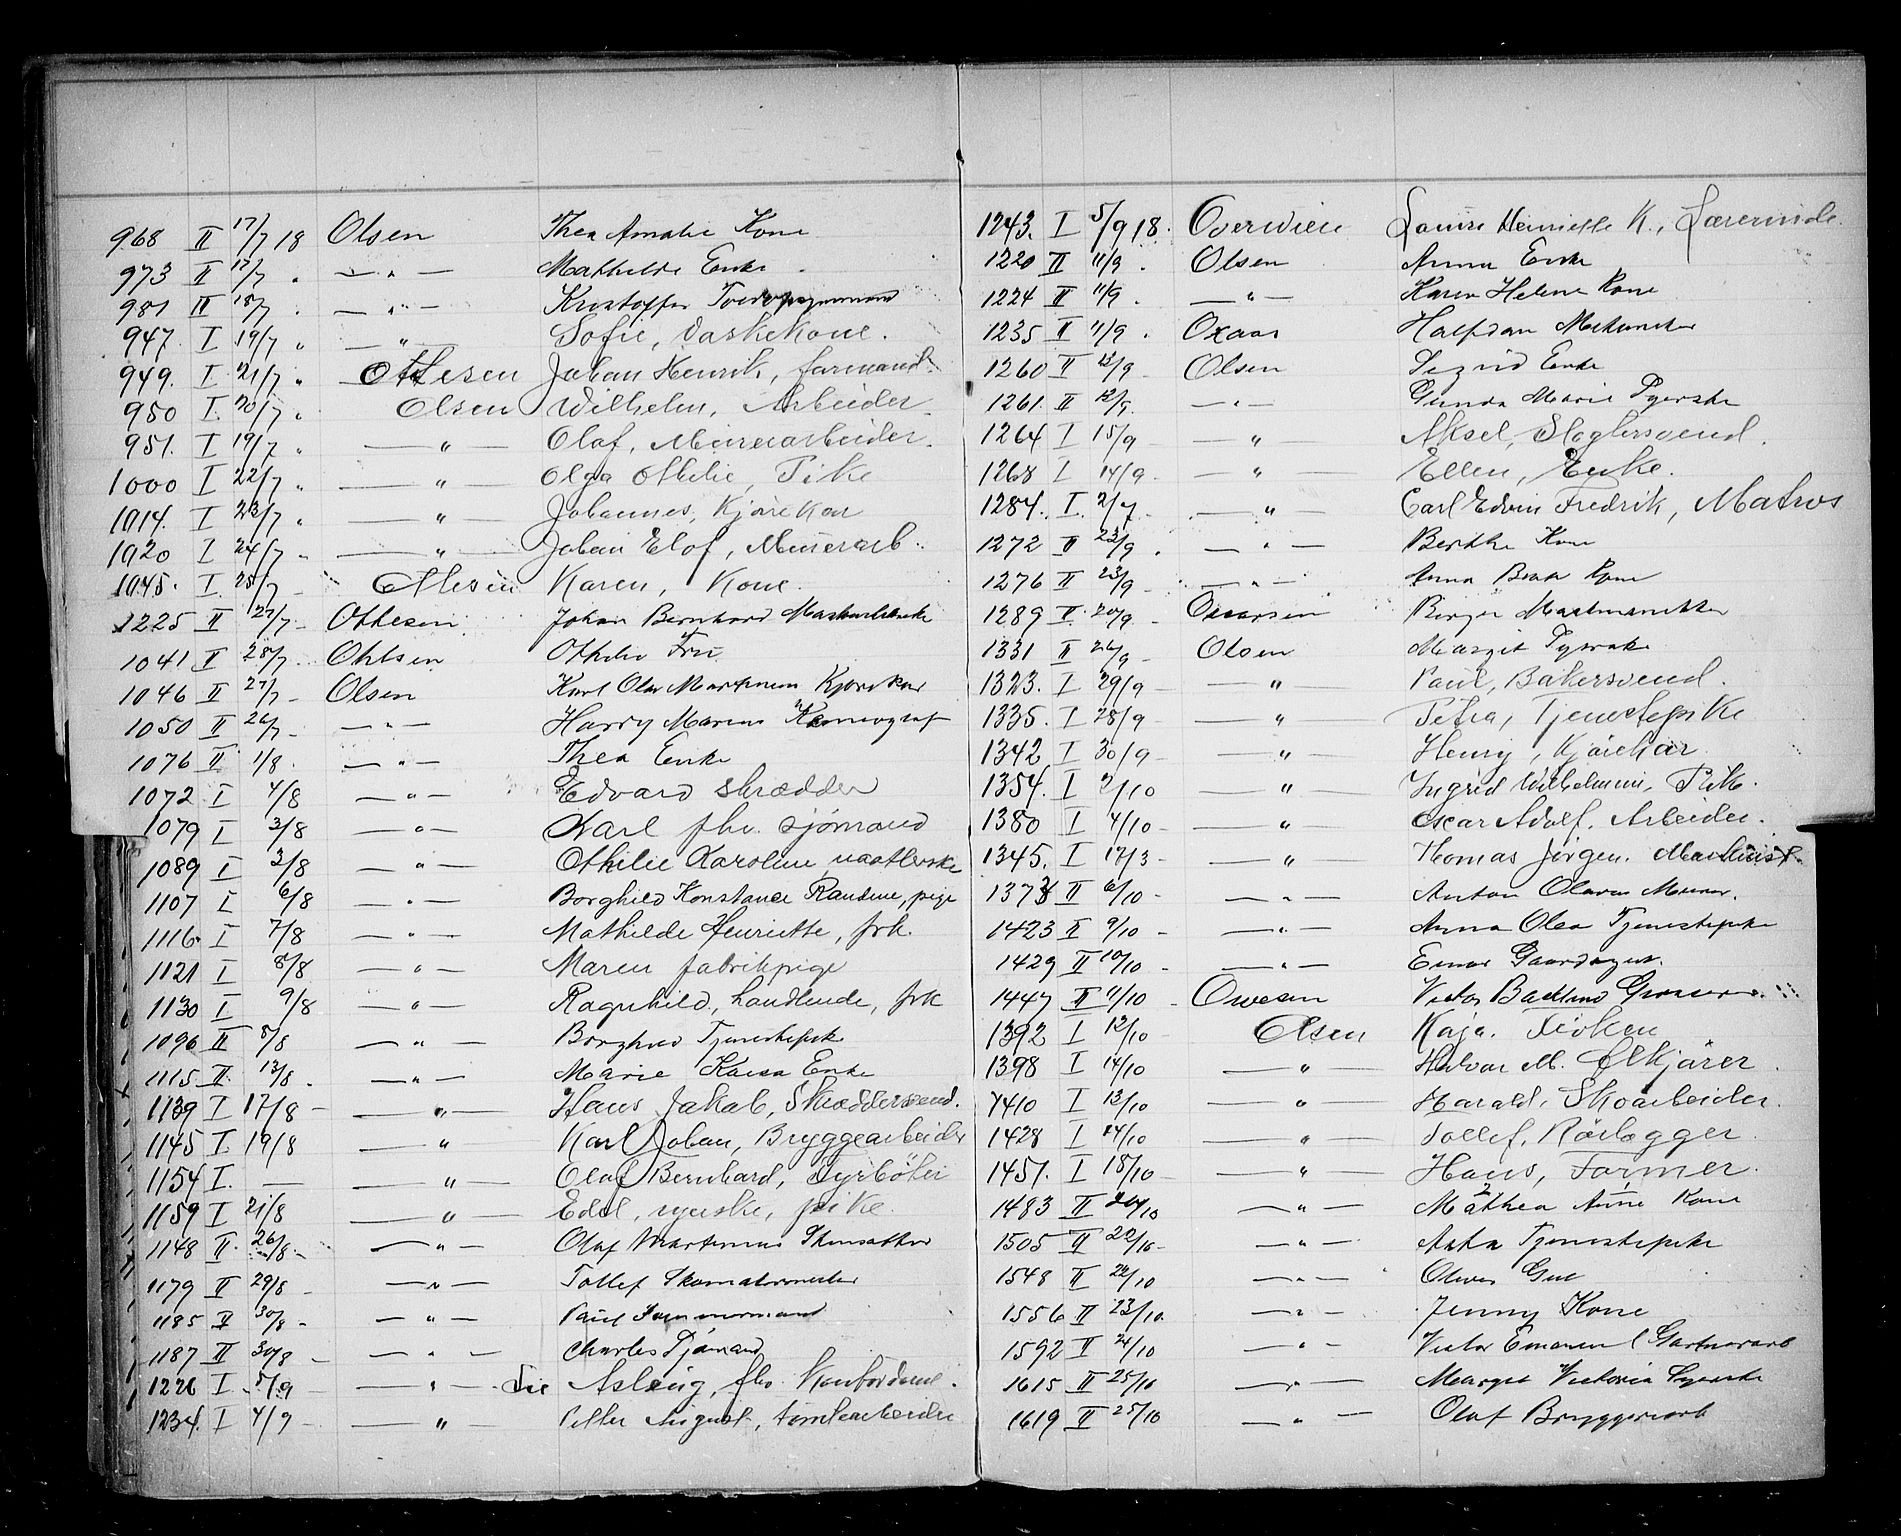 968 II 17/7 18 Olsen Thea Amalie Kone
973 II 17/7 " — " — Mathilde Enke
981 II 18/7 " — " — Kristoffer
947. I 19/7 " — " — Sofie, Vaskekone.
949. I 21/7 " Ottesen Johan Henrik, formand.
950 I. 20/7 " Olsen Wilhelm, Arbeider.
951. I 19/7 " — " — Olaf, Murerarbeider.
1000 I 22/7 " — " — Olga Othilie, Pike
1014. I 23/7 " — " — Johannes, Kjørekar
1020 I 24/7 " — " — Johan Elof, Murerarb.
1045. I. 25/7 — Ottesen Karen, Kone.
1225 II 27/7 — Ottesen Johan Bernhard
1041 II 28/7 Ohlsen Othilie Fru
1046 II 27/7 — Olsen Karl Olav Martinius Kjørekar
1050 II 26/7 — — " — Harry Marius
1076 II 1/8 — " — Thea Enke
1072 I 4/8 — " — Edvard skrædder
1079 I 3/8 — " — Karl fhv. sjømand
1089 I 2/8 — " — Othilie Karoline,
1107 I 6/8 — " — Borghild Konstance Randine, pige
1116. I 7/8 — " — Mathilde Henriette, frk.
1121 I 8/8 — " — Maren fabrikpige
1130 I 9/8 — " — Ragnhild, handlende, frk
1096 II 8/8 — " — Borghild Tjenestepike
1115 II. 13/8. — " — Marie Kaisa Enke
1139 I 17/8 — — " — Hans Jakob, Skræddersvend.
1145 I. 19/8 — " — Karl Johan, Bryggearbeider
1154 I. — — " — Olaf Bernhard, Fyrbøter
1159 I 21/8 — " — Edel, syerske, pike.
1148 II. 26/8 — — " — Olaf Martinius Stensætter
1179 II 29/8 — — " — Tollef Skomakermester
1185 II 30/8 — — " — Paul Tømmermand
1187 II 30/8 — — " — Charles Sjømand
1226 I. 5/9 — " — Aslaug, fhv.
1234. I 4/9 — — " — Petter August, tomtearbeider
1243. I 5/9 18. Overwien Louise Henriette K., Lærerinde.
1220 II 11/9 . Olsen Anna Enke
1224 II 11/9 . — " — Karen Helene Kone
1235 II 11/9 . Oxaas Halfdan Mekaniker
1260 II 13/9 — Olsen Sigrid Enke
1261. II 12/9. — " — Gunda Marie Syerske
1264 I 15/9 — — " — Aksel, Slagtersvend.
1268 I 14/9. — " — Ellen, Enke.
1284. I. 2/7 — — " — Carl Edvin Fredrik, Matros
1272 II 23/9 . — " — Berthe Kone
1276 II 23/9 — " — Anna Kone
1289 II. 20/9. — Oscarsen Birger
1331 II 26/9 — Olsen Margit Syerske
1323. I 29/9 — — " — Paul, Bakersvend.
1335. I 28/9 — — " — Petra, Tjenestepike
1342 I 30/9 — — " — Henry, Kjørekar
1354. I 2/10 — " — Ingrid Wilhelmine, Pike.
1380 I 4/10 — — " — Oscar Adolf. Arbeider.
1345. I 17/3 — — " — Thomas Jørgen. Maskinist.
1373 II 6/10 — — " — Anton Olavus Murer.
1423 II 9/10 — — " — Anna Olea Tjenestepike
1429 II 10/10 — — " — Einar Gaardagut.
1447 II 11/10 — Owesen Victor Backlund Grosserer.
1392 I 12/10 — Olsen Kaja. Frøken
1398 I 14/10 — " — Halvor M. Ølkjører.
1410 I 13/10 — " — Harald, Skoarbeider.
1428 I 14/10 — " — Tollef, Rørlegger.
1451. I 18/10 — — " — Hans, Farmer.
1483 II 20/10 — " — Mathea Anne Kone
1505 II 22/10 — — " — Asta Tjenestepike
1548 II 22/10 — " — Oliver Gut
1556 II 23/10. — " — Jenny Kone
1592 II 24/10 — " — Victor Emanuel Gartnerarb
1615 II 25/10 — " — Margit Victoria Syerske
1619 II 25/10 — " — Olaf Bryggeriarb